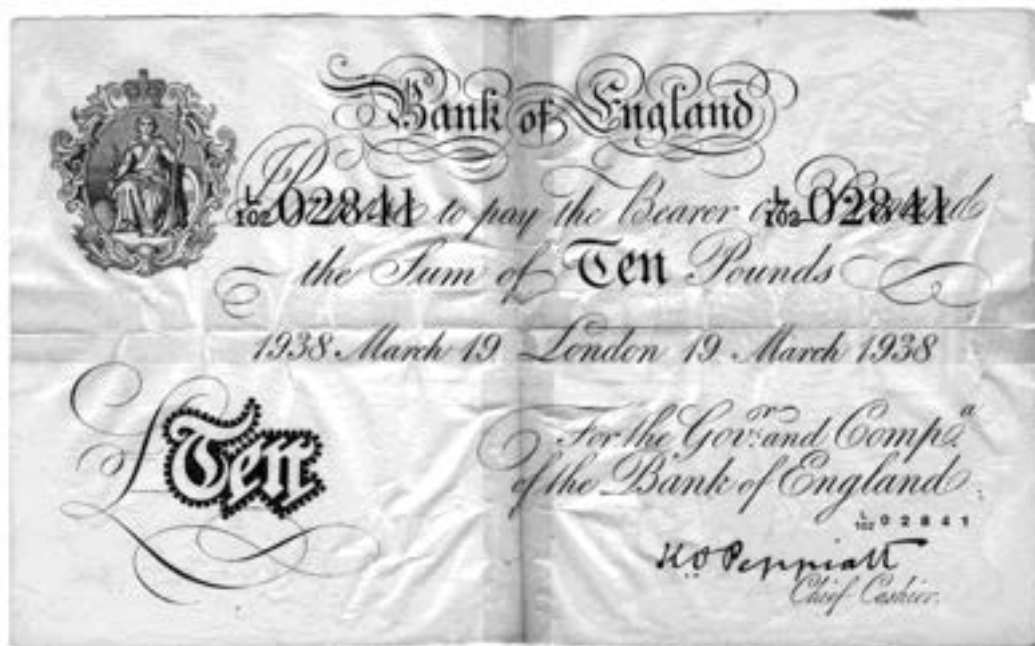 Bank of England
L/102 02841 to pay the Bearer on Demand L/102 02841
the Sum of Ten Pounds
1938 March 19 London 19 March 1938
£Ten
For the Gov.r and Comp.a
of the Bank of England
L/102 02841
K.O. Peppiatt
Chief Cashier.